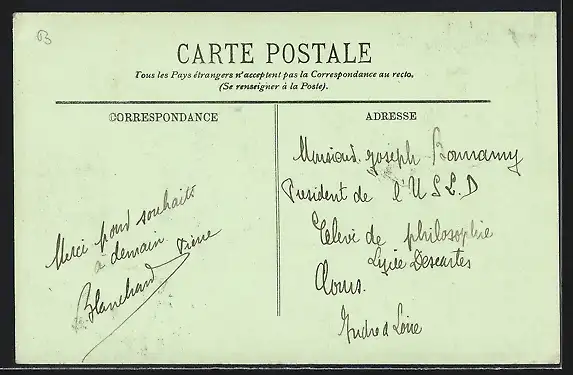 B
CARTE POSTALE
Tous les Pays étrangers n'acceptent pas la Correspondance au recto.
(Se renseigner à la Poste).
CORRESPONDANCE
ADRESSE
Monsieur Joseph Bonnamy
President de l'U S L D
Elève de philosophie
Lycée Descartes
Tours.
Indre & Loire
Merci pour souhaits
à demain
Blanchard